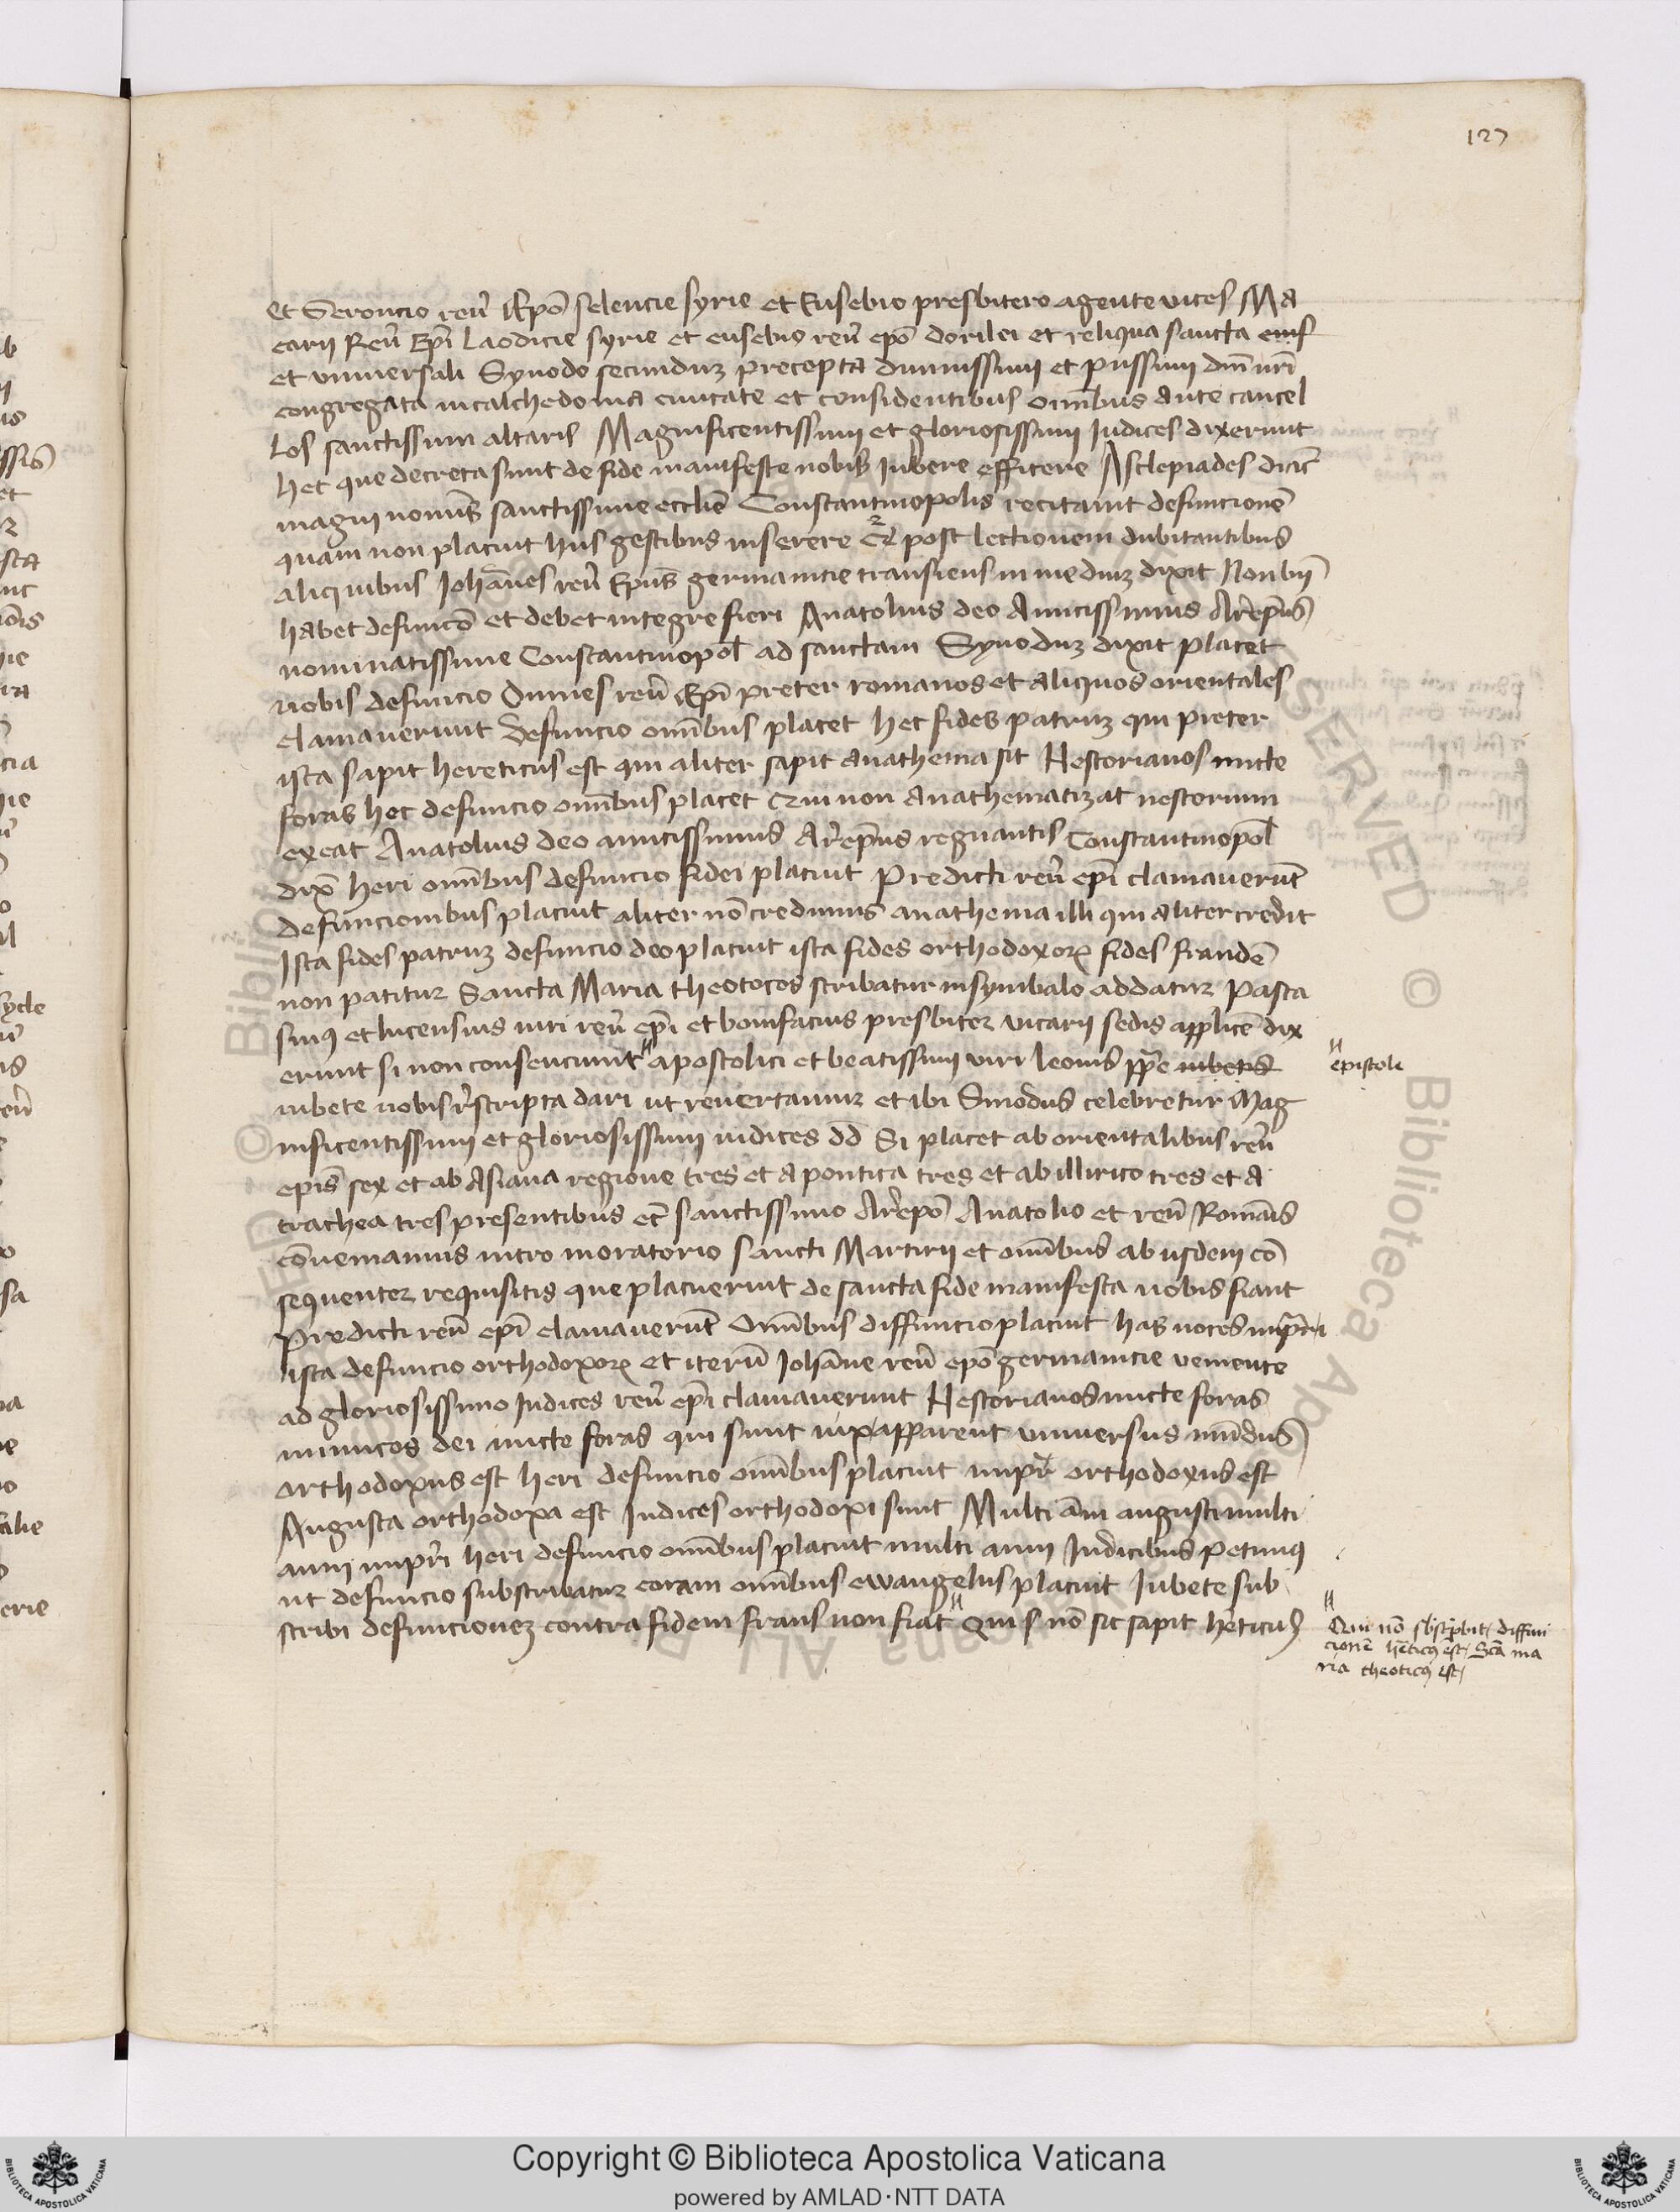 127
et Geroncio reu͞ Ep͞o selencie syrie et Eusebio presbitero agente uices Ma
carij Reu͞ Ep͞i Laodicie syrie et eusebio reu͞ ep͞o dorilei et reliqua sancta eius
et vniuersali Synodo secundum precepta diuinissimi et piissimi dm͞ nr͞i
congregata in calchedonia ciuitate et considentibus omi͞bus ante cancel
los sanctissimi altaris Magnificentissimi et gloriosissimi Iudices dixerunt
hec que decreta sunt de fide manifeste nobis iubere efficere Asclepiades dicit͞
magni nominis sanctissime eccl͞ie Constantinopolis recitauit defuncione͞
quam non placuit hiis gestibus inserere et post lectionem dubitantibus
aliquibus Ioha͞nes reu͞ Ep͞us germanicie transiens in medium dixit Non bn͞
habet defuncio͞ et debet integre fieri Anatolius deo Amicissimus Arep͞us
nominatissime Constantinopol͞ ad sanctam Synodum dixit Placet
uobis defuncio Omnes reu͞ Ep͞i preter romanos et aliquos orientales
clamauerunt Defuncio omi͞bus placet hec fides patrum qui preter
ista sapit hereticus est qui aliter sapit anathema sit Nestorianos mitte
foras hec defuncio omi͞bus placet Qui non anathematizat nestorium
exeat Anatolius deo amicissimus Arep͞us regnantis Constantinopol͞
dix͞ heri omi͞bus defuncio fidei placuit Predicti reu͞ ep͞i clamauerunt͞
defuncionibus placuit aliter no͞ credimus anathema illi qui aliter credit
Ista fides patrum defuncio deo placuit ista fides orthodoxorum fides fraude͞
non patitur Sancta Maria theotocos scribatur in symbalo addatur Pasca
sinus et lucensius uiri reu͞ ep͞i et bonifacius presbiter vicarij sedis appl͞ice dix
erunt si non consenciunt " apostolici et beatissimi viri leonis pp͞e iubetis
iubete nobis rescripta dari ut reuertamur et ibi Sinodus celebretur Mag
nificentissimi et gloriosissimi iudices dd͞ Si placet ab orientalibus reu͞
epi͞s sex et ab Asiana regione tres et a pontica tres et ab illirico tres et a
trachea tres presentibus et͞ sanctissimo Arep͞o Anatolio et reu͞ Roma͞is
co͞ueniamus intro moratorio sancti Martirij et omi͞bus ab iisdem co͞
sequenter requisitis que placuerunt de sancta fide manifesta uobis fiant
Predicti reu͞ ep͞i clamauerunt͞ Omi͞bus diffuncio placuit has uoces
ista defuncio orthodoxorum et iteru͞ Ioha͞ne reu͞ ep͞o germanicie veniente
ad gloriosissimo Iudices reu͞ ep͞i clamauerunt Nestorianos mitte foras
inimicos dei mitte foras qui sunt apparent vniuersus mu͞dus
orthodoxus est heri defuncio omi͞bus placuit impr͞ orthodoxus est
Augusta orthodoxa est Iudices orthodoxi sunt Multi a͞ni augusti multi
anni impr͞i heri defuncio omi͞bus placuit multi anni Iudicibus Petimus
ut defuncio subscribatur coram omi͞bus ewangeliis placuit Iubete sub
scribi defuncionem contra fidem fraus non fiat " Quis no͞ sic sapit he͞ticus
" epistole
" Qui no͞ sbscribit diffini
cione͞ he͞ticus est Sca͞ ma
ria theoticus est
Copyright © Biblioteca Apostolica Vaticana
powered by AMLAD·NTT DATA